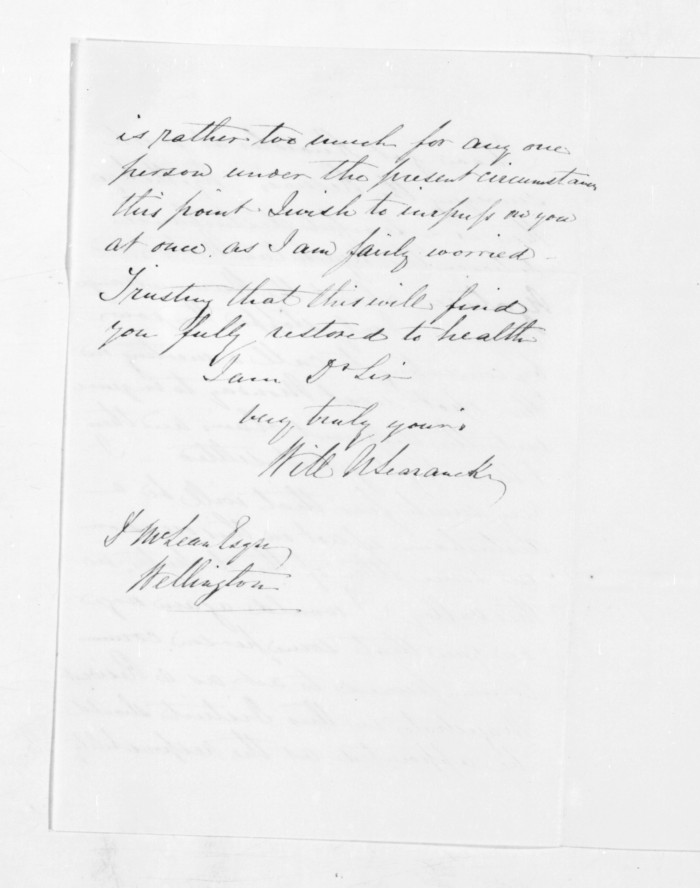 is rather too much for any one
person under the present circumstances
this point I wish to impress on you
at once. as I am fairly worried -
Trusting that this will find
you fully restored to health
I am Dr Sir
very truly yours
Will N Searancke
J McLean Esqre
Wellington